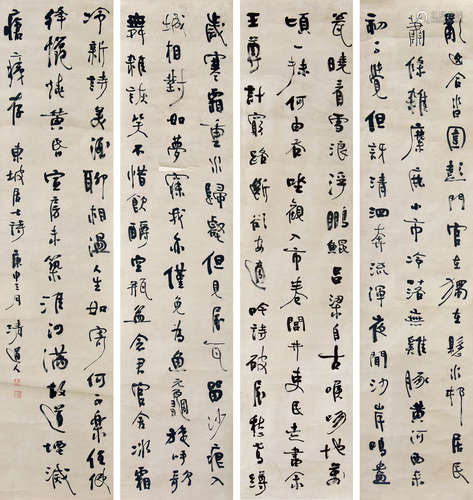 亂山合沓圍彭門官在獨在懸水邨居民
蕭條雜麋鹿小市冷落無雞豚黃河西来
初不覺但訝清泗奔流渾夜聞沙岸鳴盎
瓮曉看雪浪浮鵬鯤呂梁自古喉吻地萬
頃一抹何由吞坐觀入市卷閭井吏民走盡余
王尊計窮路斷欲安適吟詩破屋愁鳶蹲
歲寒霜重水歸壑但見屋瓦留沙痕入
城相對如夢寐我亦僅免為魚黿旋呼歌
舞雜詼笑不惜飲釂空瓶盆念君官舍冰霜
冷新詩美酒聊相温人生如寄何不樂任使
絳蠟燒黃昏宣房未築淮泗滿故道堙滅
瘡痍存 東坡居士詩 庚申三月清道人